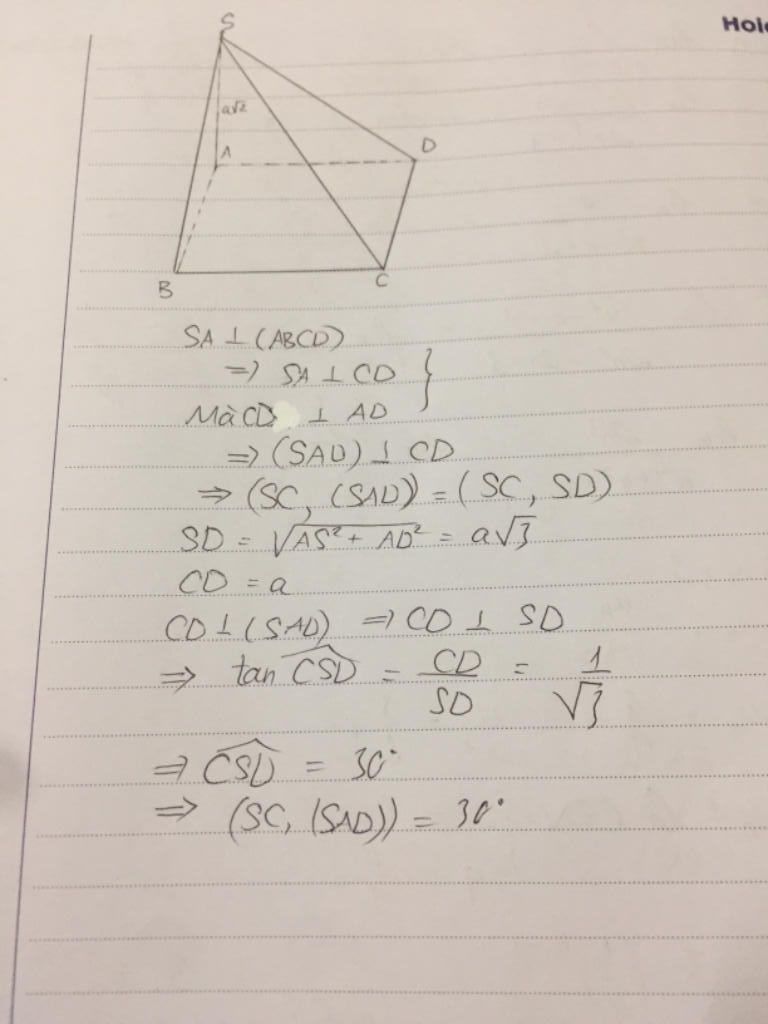 Hol
S
a√2
A
D
B
C
SA ⊥ (ABCD)
=> SA ⊥ CD }
Mà CD ⊥ AD
=> (SAD) ⊥ CD
=> (SC, (SAD)) = (SC, SD)
SD = √AS² + AD² = a√3
CD = a
CD ⊥ (SAD) => CD ⊥ SD
=> tan CSD̂ = CD/SD = 1/√3
=> CSD̂ = 30°
=> (SC, (SAD)) = 30°